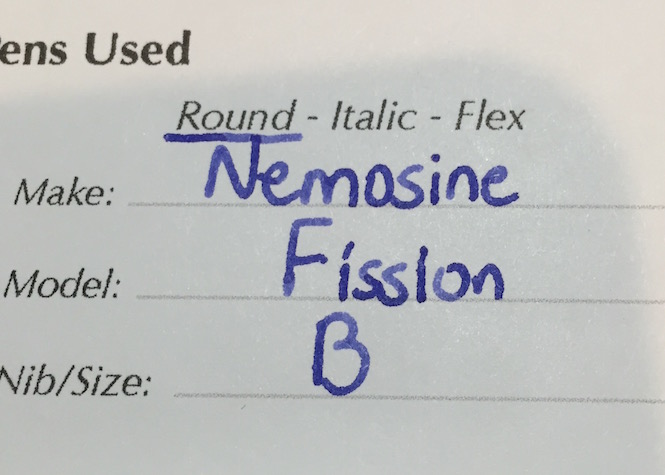 ens Used
Round - Italic - Flex
Make: Nemosine
Model: Fission
Nib/Size: B